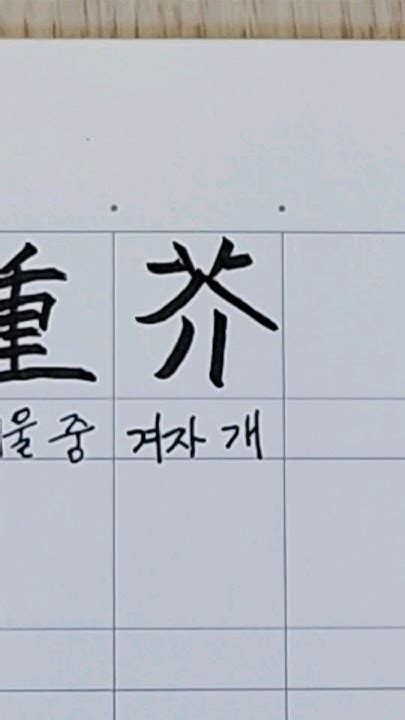 重 芥
울 중 겨자 개